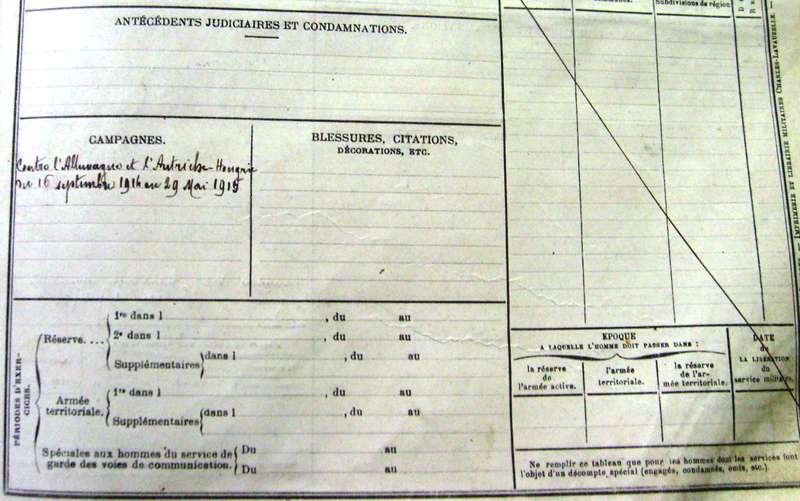 Subdivisions de région
ANTÉCÉDENTS JUDICIAIRES ET CONDAMNATIONS.
CAMPAGNES.
Contre l'Allemagne et l'Autriche-Hongrie
du 16 septembre 1914 au 29 Mai 1915
BLESSURES, CITATIONS,
DÉCORATIONS, ETC.
PÉRIODES D'EXERCICES.
Réserve....
1re dans l , du au
2e dans l , du au
Supplémentaires dans l , du au
Armée
territoriale.
1re dans l , du au
Supplémentaires dans l , du au
Spéciales aux hommes du service de
garde des voies de communication.
Du au
Du au
ÉPOQUE
A LAQUELLE L'HOMME DOIT PASSER DANS :
la réserve
de
l'armée active.
l'armée
territoriale.
la réserve
de l'ar-
mée territoriale.
DATE
de
LA LIBÉRATION
du
service militaire.
Ne remplir ce tableau que pour les hommes dont les services font
l'objet d'un décompte spécial (engagés, condamnés, omis, etc.).
IMPRIMERIE ET LIBRAIRIE MILITAIRES CHARLES-LAVAUZELLE.